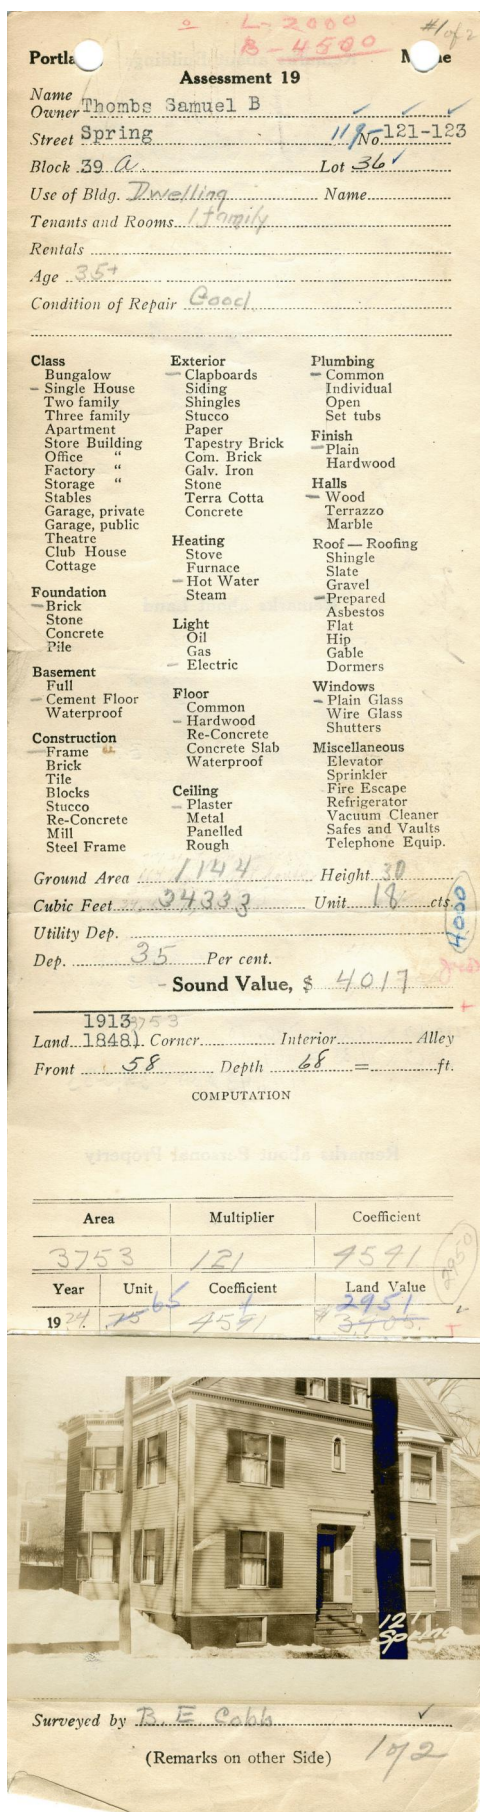 L-2000
B-4500
#1 of 2
Portla Maine
Assessment 19
Name
Owner Thombs Samuel B
Street Spring 119- No. 121-123
Block 39 A. Lot 36
Use of Bldg. Dwelling Name
Tenants and Rooms 1 family
Rentals
Age 35+
Condition of Repair Good
Class
Bungalow
- Single House
Two family
Three family
Apartment
Store Building
Office "
Factory "
Storage "
Stables
Garage, private
Garage, public
Theatre
Club House
Cottage
Foundation
- Brick
Stone
Concrete
Pile
Basement
Full
- Cement Floor
Waterproof
Construction
- Frame
Brick
Tile
Blocks
Stucco
Re-Concrete
Mill
Steel Frame
Exterior
- Clapboards
Siding
Shingles
Stucco
Paper
Tapestry Brick
Com. Brick
Galv. Iron
Stone
Terra Cotta
Concrete
Heating
Stove
Furnace
- Hot Water
Steam
Light
Oil
Gas
- Electric
Floor
Common
- Hardwood
Re-Concrete
Concrete Slab
Waterproof
Ceiling
- Plaster
Metal
Panelled
Rough
Plumbing
- Common
Individual
Open
Set tubs
Finish
- Plain
Hardwood
Halls
- Wood
Terrazzo
Marble
Roof — Roofing
Shingle
Slate
Gravel
- Prepared
Asbestos
Flat
Hip
Gable
Dormers
Windows
- Plain Glass
Wire Glass
Shutters
Miscellaneous
Elevator
Sprinkler
Fire Escape
Refrigerator
Vacuum Cleaner
Safes and Vaults
Telephone Equip.
Ground Area 1144 Height 30
Cubic Feet 34,333 Unit 18 cts.
4000
Utility Dep.
Dep. 35 Per cent.
- Sound Value, $ 4017
1913 3753
Land 1848) Corner Interior Alley
Front 58 Depth 68 = ft.
COMPUTATION
Area Multiplier Coefficient
3753 121 4541
2950
Year Unit Coefficient Land Value
65 2951
19 24. 75 4541 3405.
121
Spring
Surveyed by B. E Cobb
(Remarks on other Side) 1 of 2